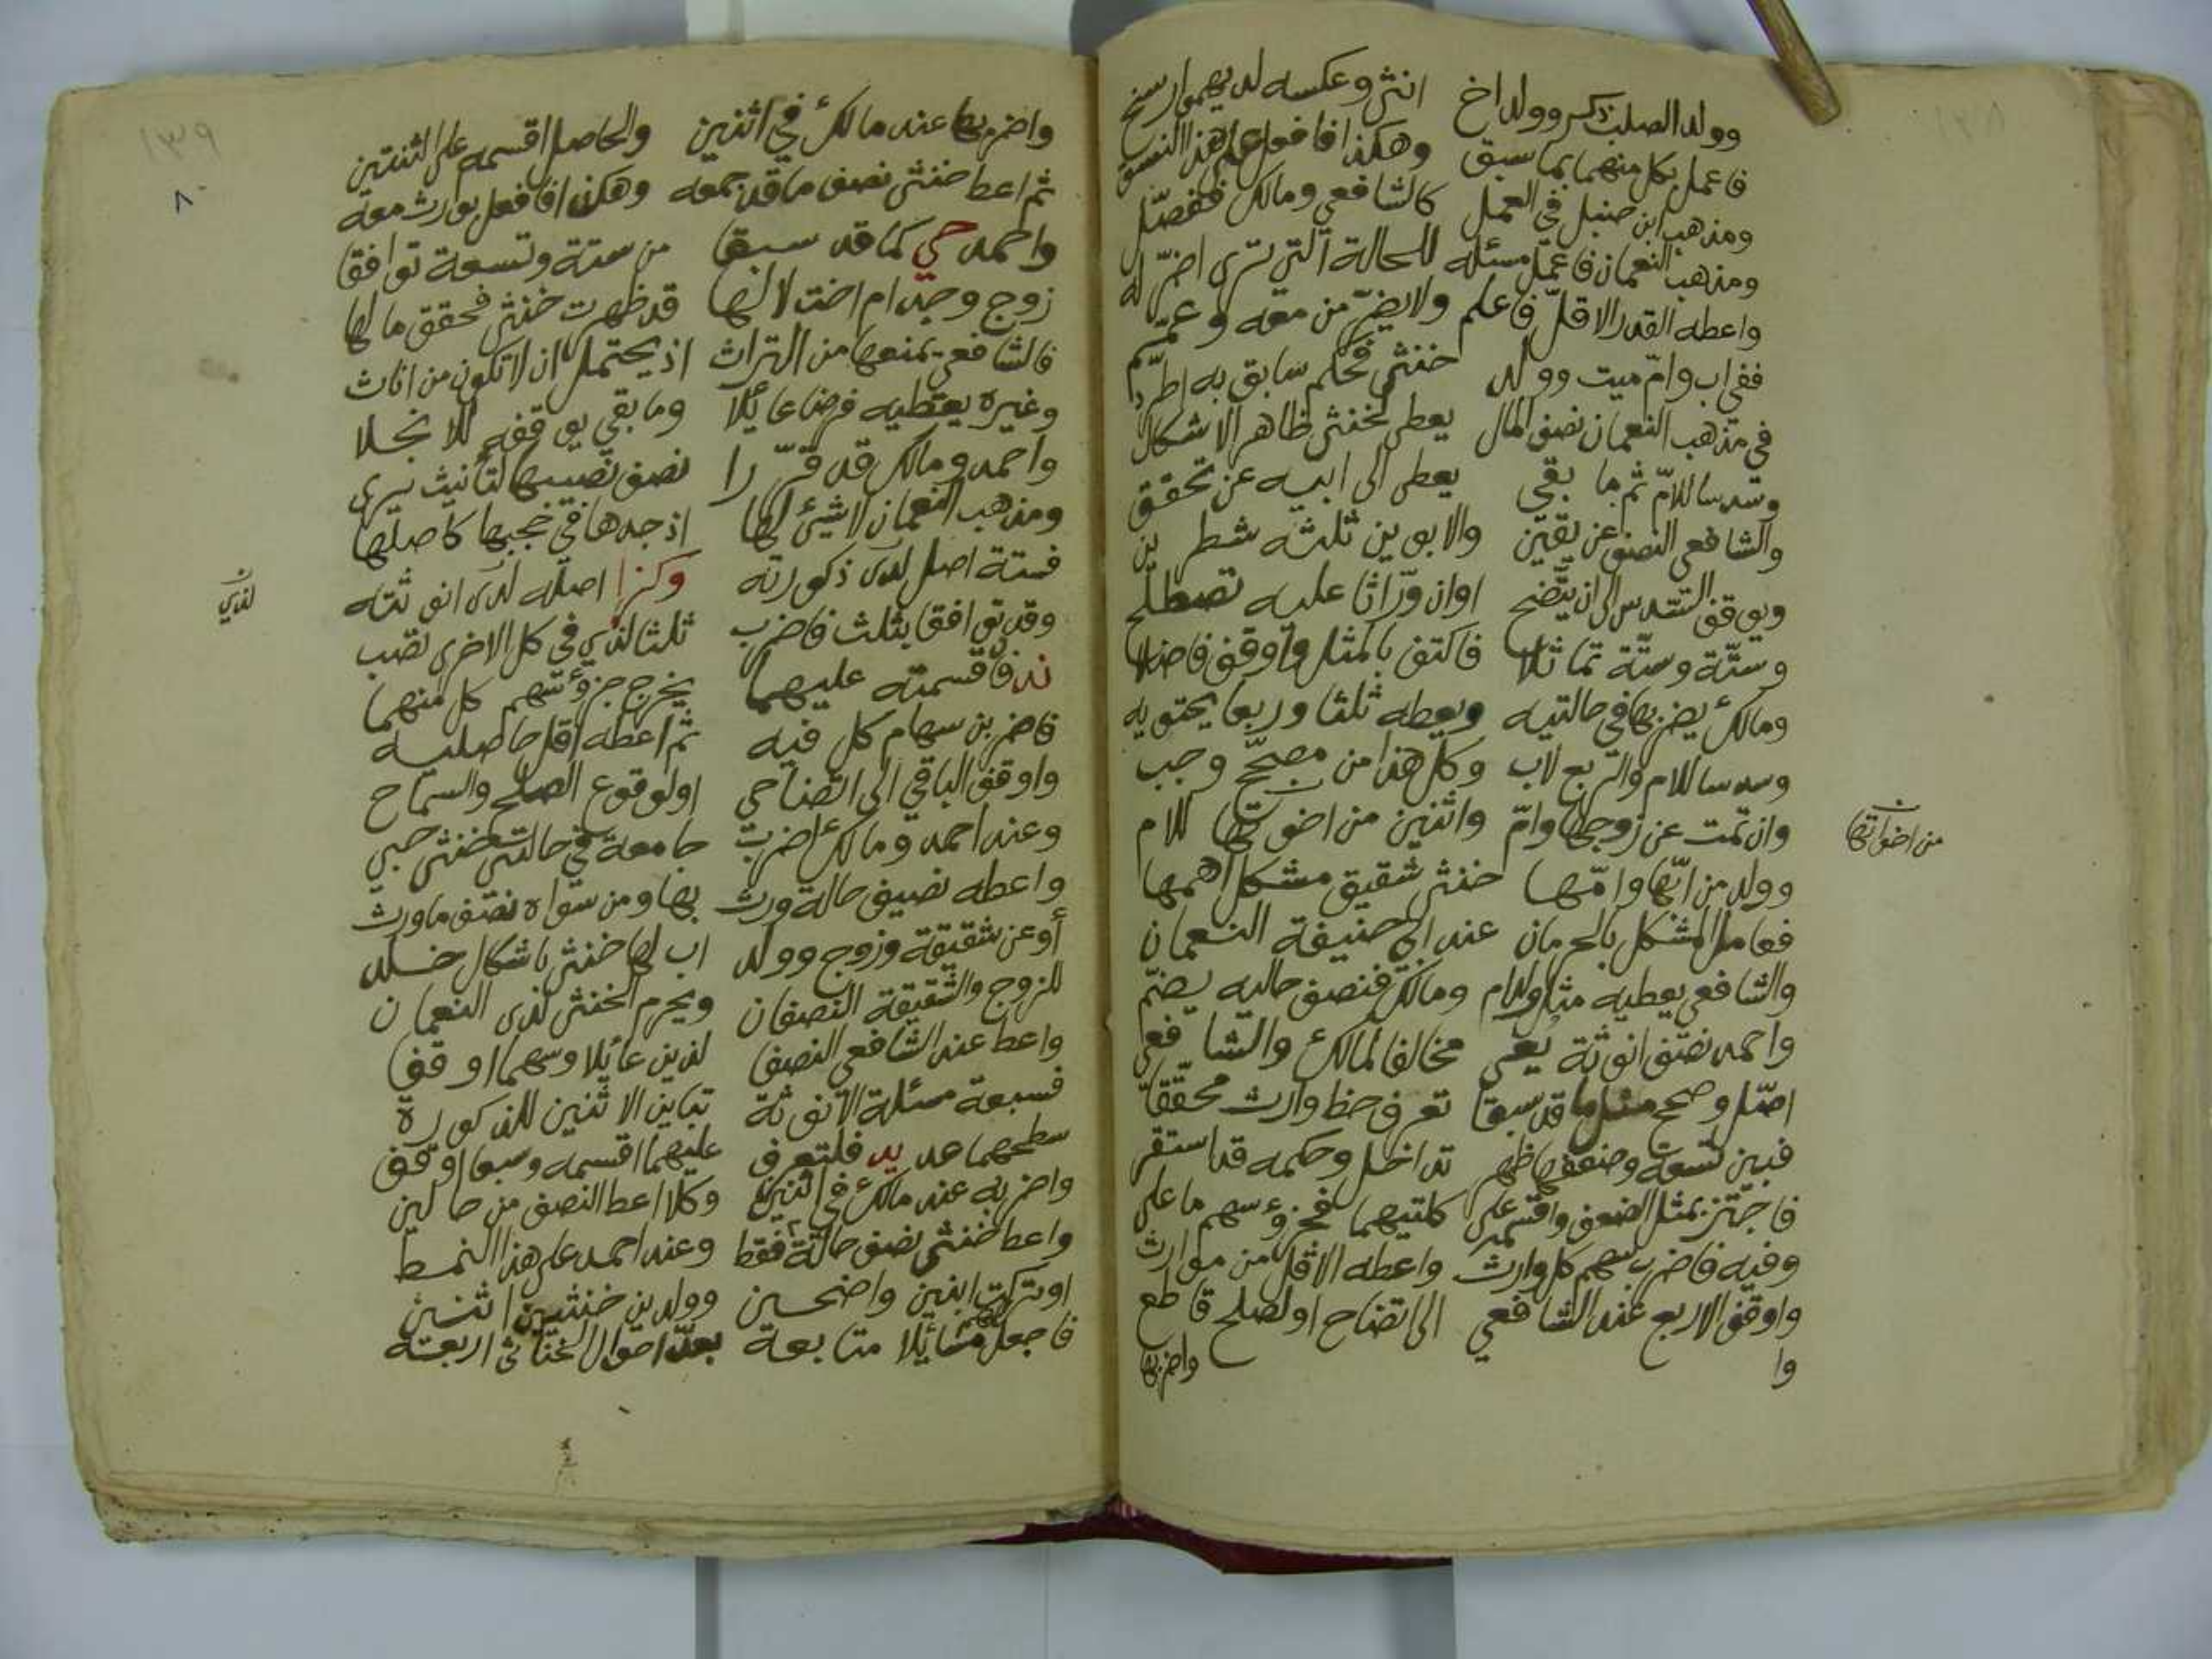 ١٣٨
وولد الصلب ذكر وولد اخ انثى وعكسه لديهم ارسخ
فاعمل بكل منهما بما سبق وهكذا فافعل على هذا النسق
ومذهب ابن حنبل في العمل كالشافعي ومالك ففصّل
ومذهب النعمان فاعمل مسئله للحالة التي ترى اضرّ له
واعطه القدر الاقلّ فاعلم ولا يضرّ من معه وعمّم
ففي اب وامّ ميت وولد خنثى فحكم سابق به اطّرد
في مذهب النعمان نصف المال يعطى لخنثى ظاهر الاشكال
وسدسا للامّ ثم ما بقي يعطى الى ابيه عن تحقق
والشافعي النصف عن يقين والابوين ثلثه شطرين
ويوقف السدس الى ان يتّضح او ان ورّاثا عليه تصطلح
وستّة وستّة تماثلا فاكتف بالمثل واوقف فاضلا
ومالك يضربها في حالتيه ويعطه ثلثا وربعا يحتويه
وسدسا للام والربع لاب وكل هذا من مصحّح وجب
وان تمت عن زوجها وامّ واثنين من اخوتها للام
من اخواتها
وولد من ابّها وامّها خنثى شقيق مشكل اهمها
فعامل المشكل بالحرمان عند ابي حنيفة النعمان
والشافعي يعطيه مثل ولد ام ومالك فنصف حاليه يضمّ
واحمد نصف انوثة يعي مخالفا لمالك والشافعي
اصّل وصحح مثل ما قد سبقا تعرف حظ وارث محقّقا
فبين تسعة وضعفها ظهر تداخل وحكمه قد استقر
فاجتز بمثل الضعف واقسم على كلتيهما فجزؤ سهم ما على
وفيه فاضرب سهم كل وارث واعطه الاقل من موارث
واوقف الاربع عند الشافعي الى تضاح او لصلح قاطع
وا
واضربها
١٣٩
٨٠
واضربها عند مالك في اثنين والحاصل اقسمه على الثنتين
ثم اعط خنثى نصف ما قد جمعه وهكذا فافعل بوارث معه
واحمد حي كما قد سبقا من ستة وتسعة توافقا
زوج وجد ام اخت لا لها قد ظهرت خنثى فحقق ما لها
فالشافعي يمنعها من التراث اذ يحتمل ان لا تكون من اناث
وغيره يعطيه فرضا عائلا وما بقي يوقفه للانجلا
واحمد ومالك قد قرّرا نصف نصيبها لتأنيث يرى
ومذهب النعمان لا شيئ لها اذ جدها في حجبها كاصلها
فستة اصل لدى ذكورته وكزا اصله لدى انوثته
وقد توافقا بثلث فاضرب ثلثا لذي في كل الاخرى تصب
لذي
ند فاقسمته عليهما يخرج جزؤ سهم كل منهما
فاضربن سهام كل فيه ثم اعطه اقل حاصليه
واوقف الباقي الى اتضاحي او لوقوع الصلح والسماح
وعند احمد ومالك اضرب جامعة في حالتي خنثى حبي
واعطه نصيف حالة ورث بها ومن سواه نصف ما ورث
أو عن شقيقة وزوج وولد اب لها خنثى باشكال خلد
للزوج والشقيقة النصفان ويحرم الخنثى لدى النعمان
واعط عند الشافعي النصفا لذين عائلا وسهما اوقفا
فسبعة مسئلة الانوثة تباين الاثنين للذكورة
سطحهما عد يد فلتعرف عليهما اقسمه وسبعا اوقف
واضربه عند مالك في اثنين وكلا اعط النصف من حالين
واعط خنثى نصف حالة فقط وعند احمد على هذا النمط
او تركت ابنين واضحين وولدين خنثيين اثنين
فاجعل لهم مسائلا متابعة بعدّ احوال الخناثى اربعة